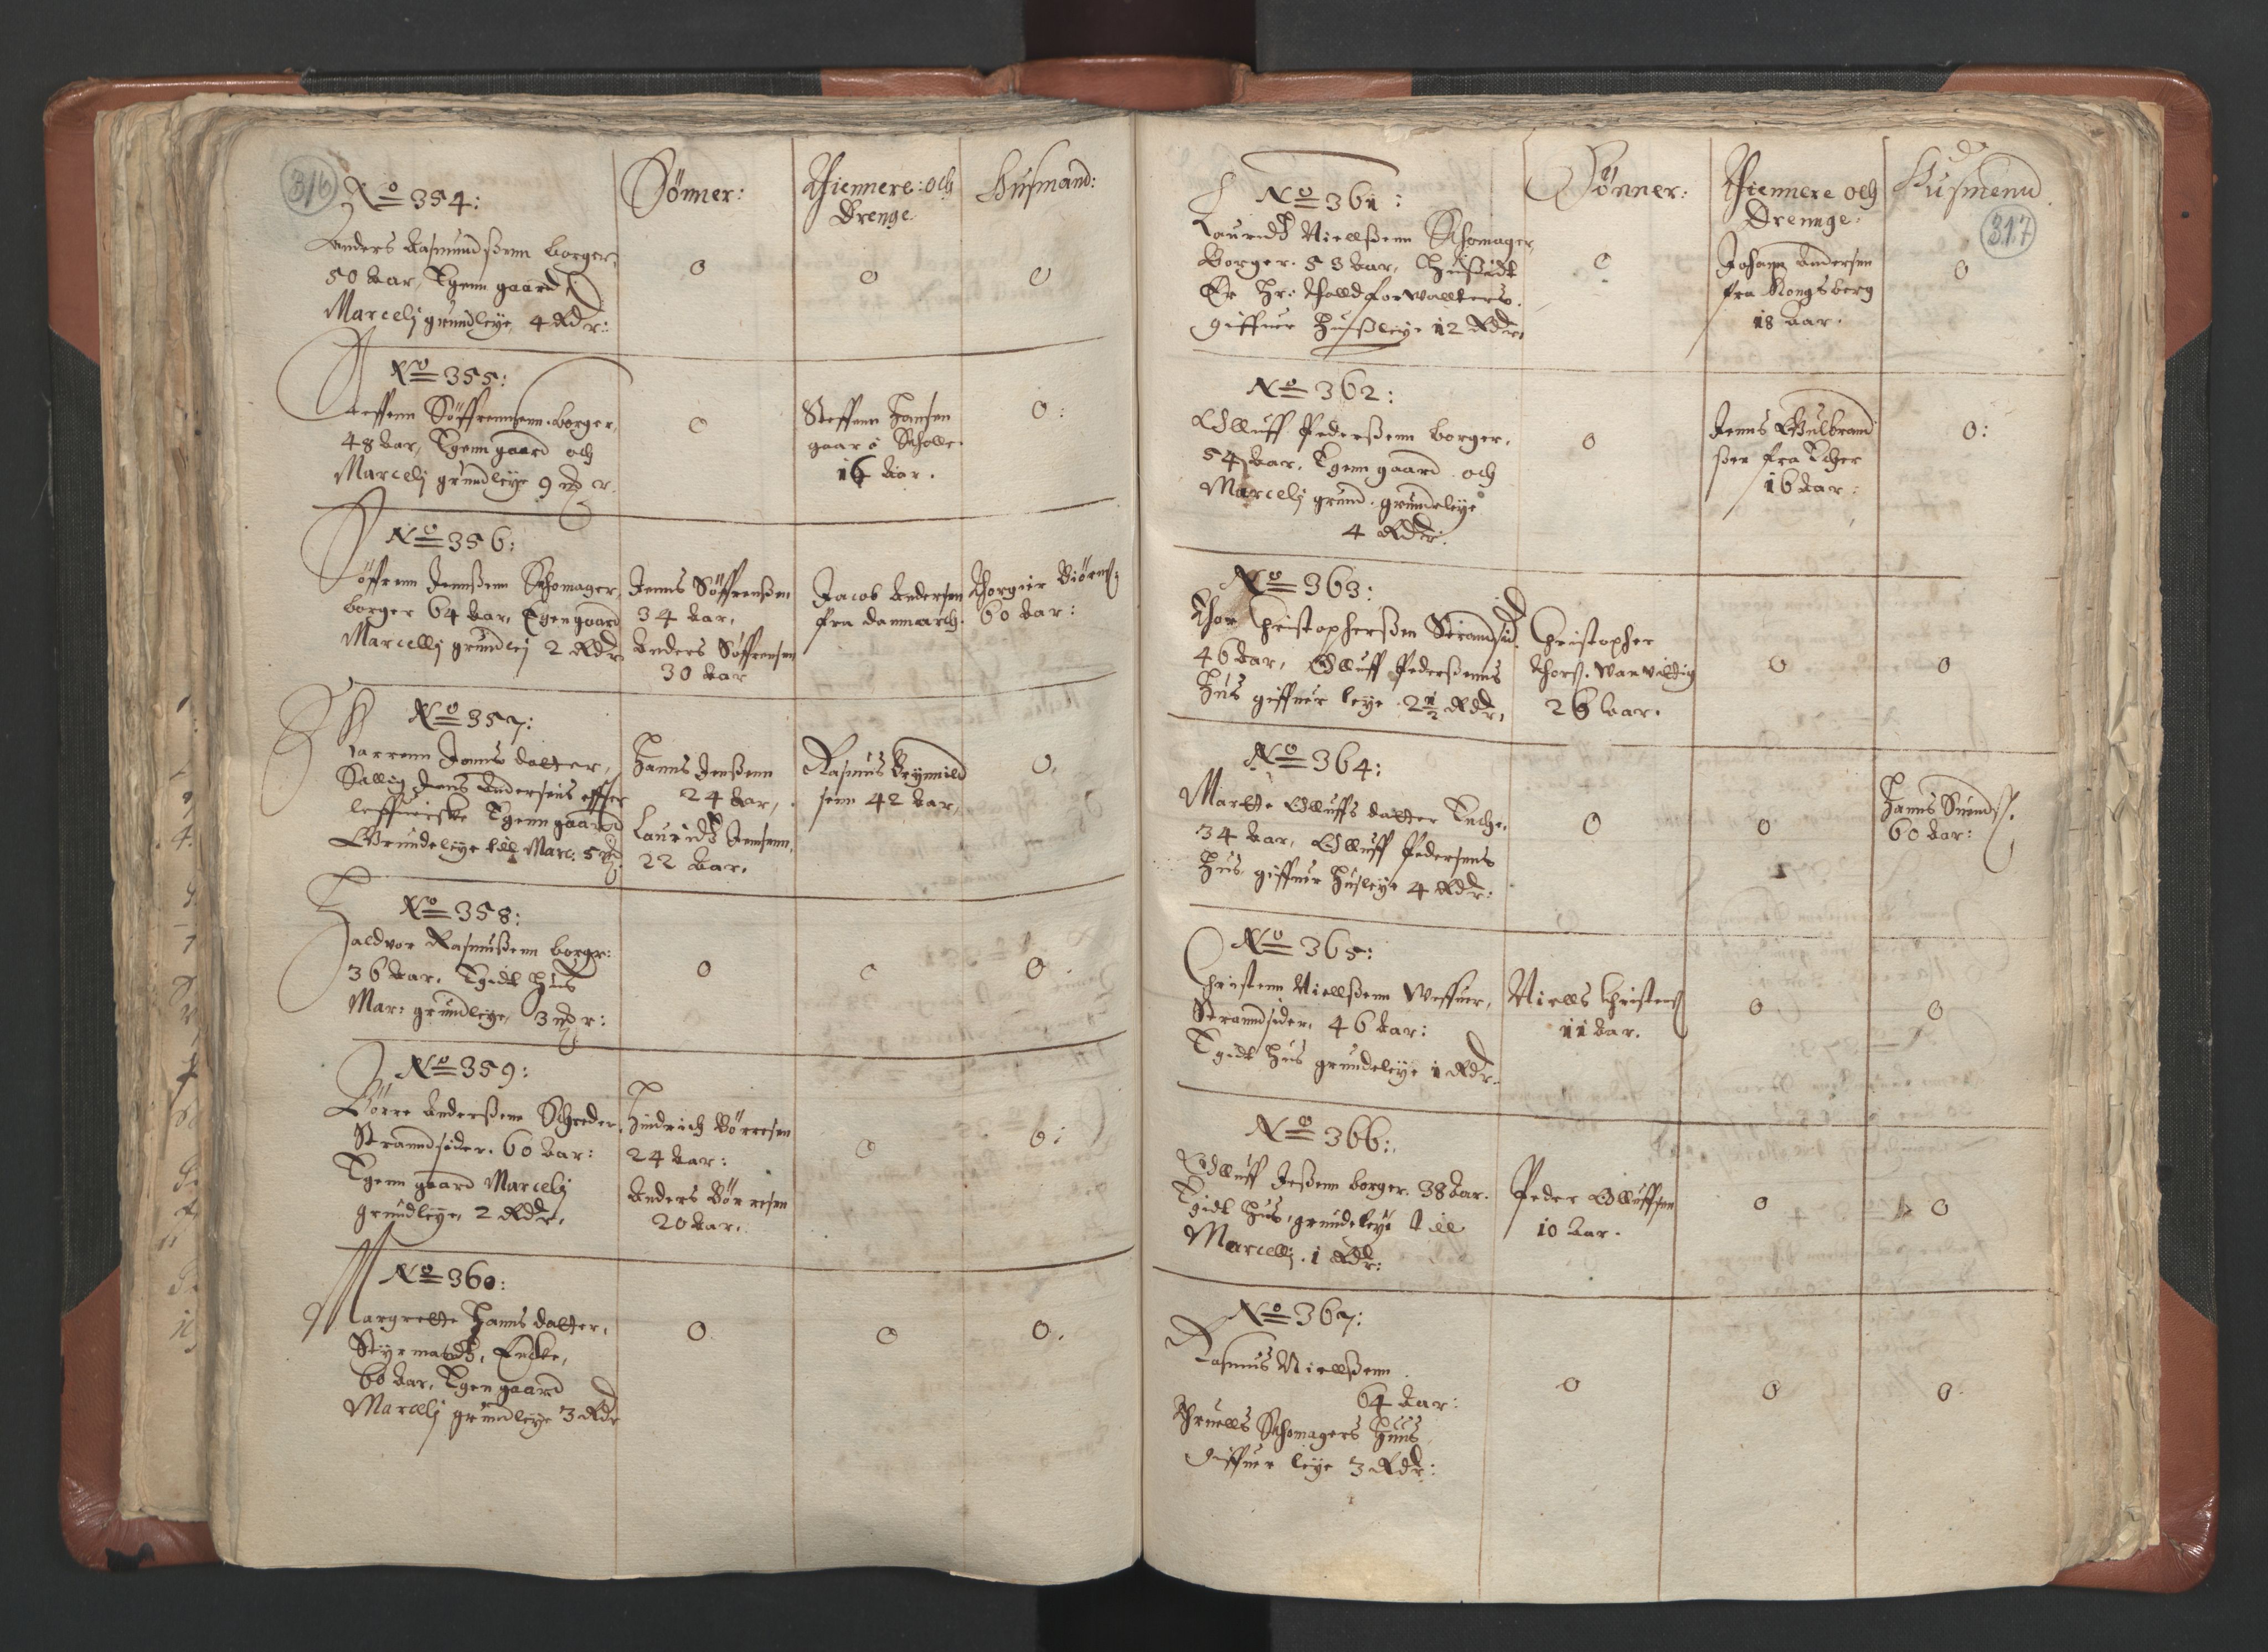 316
No 354:
Sönner:
Thiennere: och
Drenge.
Husmænd:
Anders Rasmundßenn borger,
50 Aar, Egenn gaard,
Marcelj grundleye 4 Rdr:
0
0
0
No 355:
Steffenn Söffrennsenn borger,
48 Aar, Egenn gaard och
Marcelj grundleye 9 Rdr.
0
Steffenn Hansen
gaar i Scholle.
16 Aar.
0:
No 356:
Söffrenn Jennßenn Schomager,
borger 64 Aar, Egen gaard
Marcellj grundlej 2 Rdr.
Jenns Söffrenßen
34 Aar,
Anders Söffrensen
30 Aar
Jacob Andersen
fra danmarch.
Thorgier Biörns:
60 Aar:
No 357:
Karrenn Jonns datter,
Sallig Jens Andersens effter
leffuerske Egenn gaard
Grundeleye till Marc. 5 Rdr.
Hanns Jenßenn
24 Aar,
Lauridtz Jensenn,
22 Aar.
Rasmus Brynnild
senn 42 Aar,
0.
No 358:
Haldvor Rasmußenn borger:
36 Aar. Egidt Hus
Mar: grundleye, 3 Rdr:
0
0
0.
No 359:
Börre Anderßenn Schreder,
Stranndsider. 60 Aar:
Egenn gaard Marcelj
grundleye, 2 Rdr.
Hindrich Börresen
24 Aar:
Anders Börresen
20 Aar.
0
0:
No 360:
Margrette Hanns datter,
Styrmandtz, Encke,
60 Aar, Egen gaard
Marcelj grundleye 3 Rdr
0
0
0.
317
No 361:
Sönner:
Thiennere och
Drennge:
Husmend
Lauridtz Niellßenn Schomager,
Borger. 53 Aar, Hußidt
Er Hr: Tholldforwallters.
giffuer Hußleye 12 Rdr.
0
Johann Andersen
fra Kongsberg
18 Aar.
0
No 362:
Olluff Pederßenn borger,
54 Aar, Egenn gaard och
Marcelj grund. grundeleye
4 Rdr.
0
Jenns Gulbrand
ßen fra Echer
16 Aar:
0:
No 363:
Thor Christopherßen Strandsid.
46 Aar, Olluff Pederßenns
Hus giffuer leye 2 1/2 Rdr,
Christopher
Thorß. wanvittig
26 Aar.
0
0
No 364:
Marette Olluffs datter Encke.
34 Aar, Olluff Pedersens
Hus giffuer Husleye 4 Rdr:
0
0
Hanns Suends.
60 Aar:
No 365:
Christenn Niellßenn Weffuer,
Stranndsider. 46 Aar:
Egidt Hus grundeleye 1 Rdr.
Niells Christens
11 Aar.
0
0
No 366:
Olluff Jeßenn borger. 38 Aar.
Egidt Hus, grundeleye till
Marcellj. 1 Rdr:
Peder Olluffsen
10 Aar.
0
0
No 367:
Rasmus Niellßenn.
64 Aar:
Truells Schomagers Huus
Giffuer leye 3 Rdr:
0
0
0